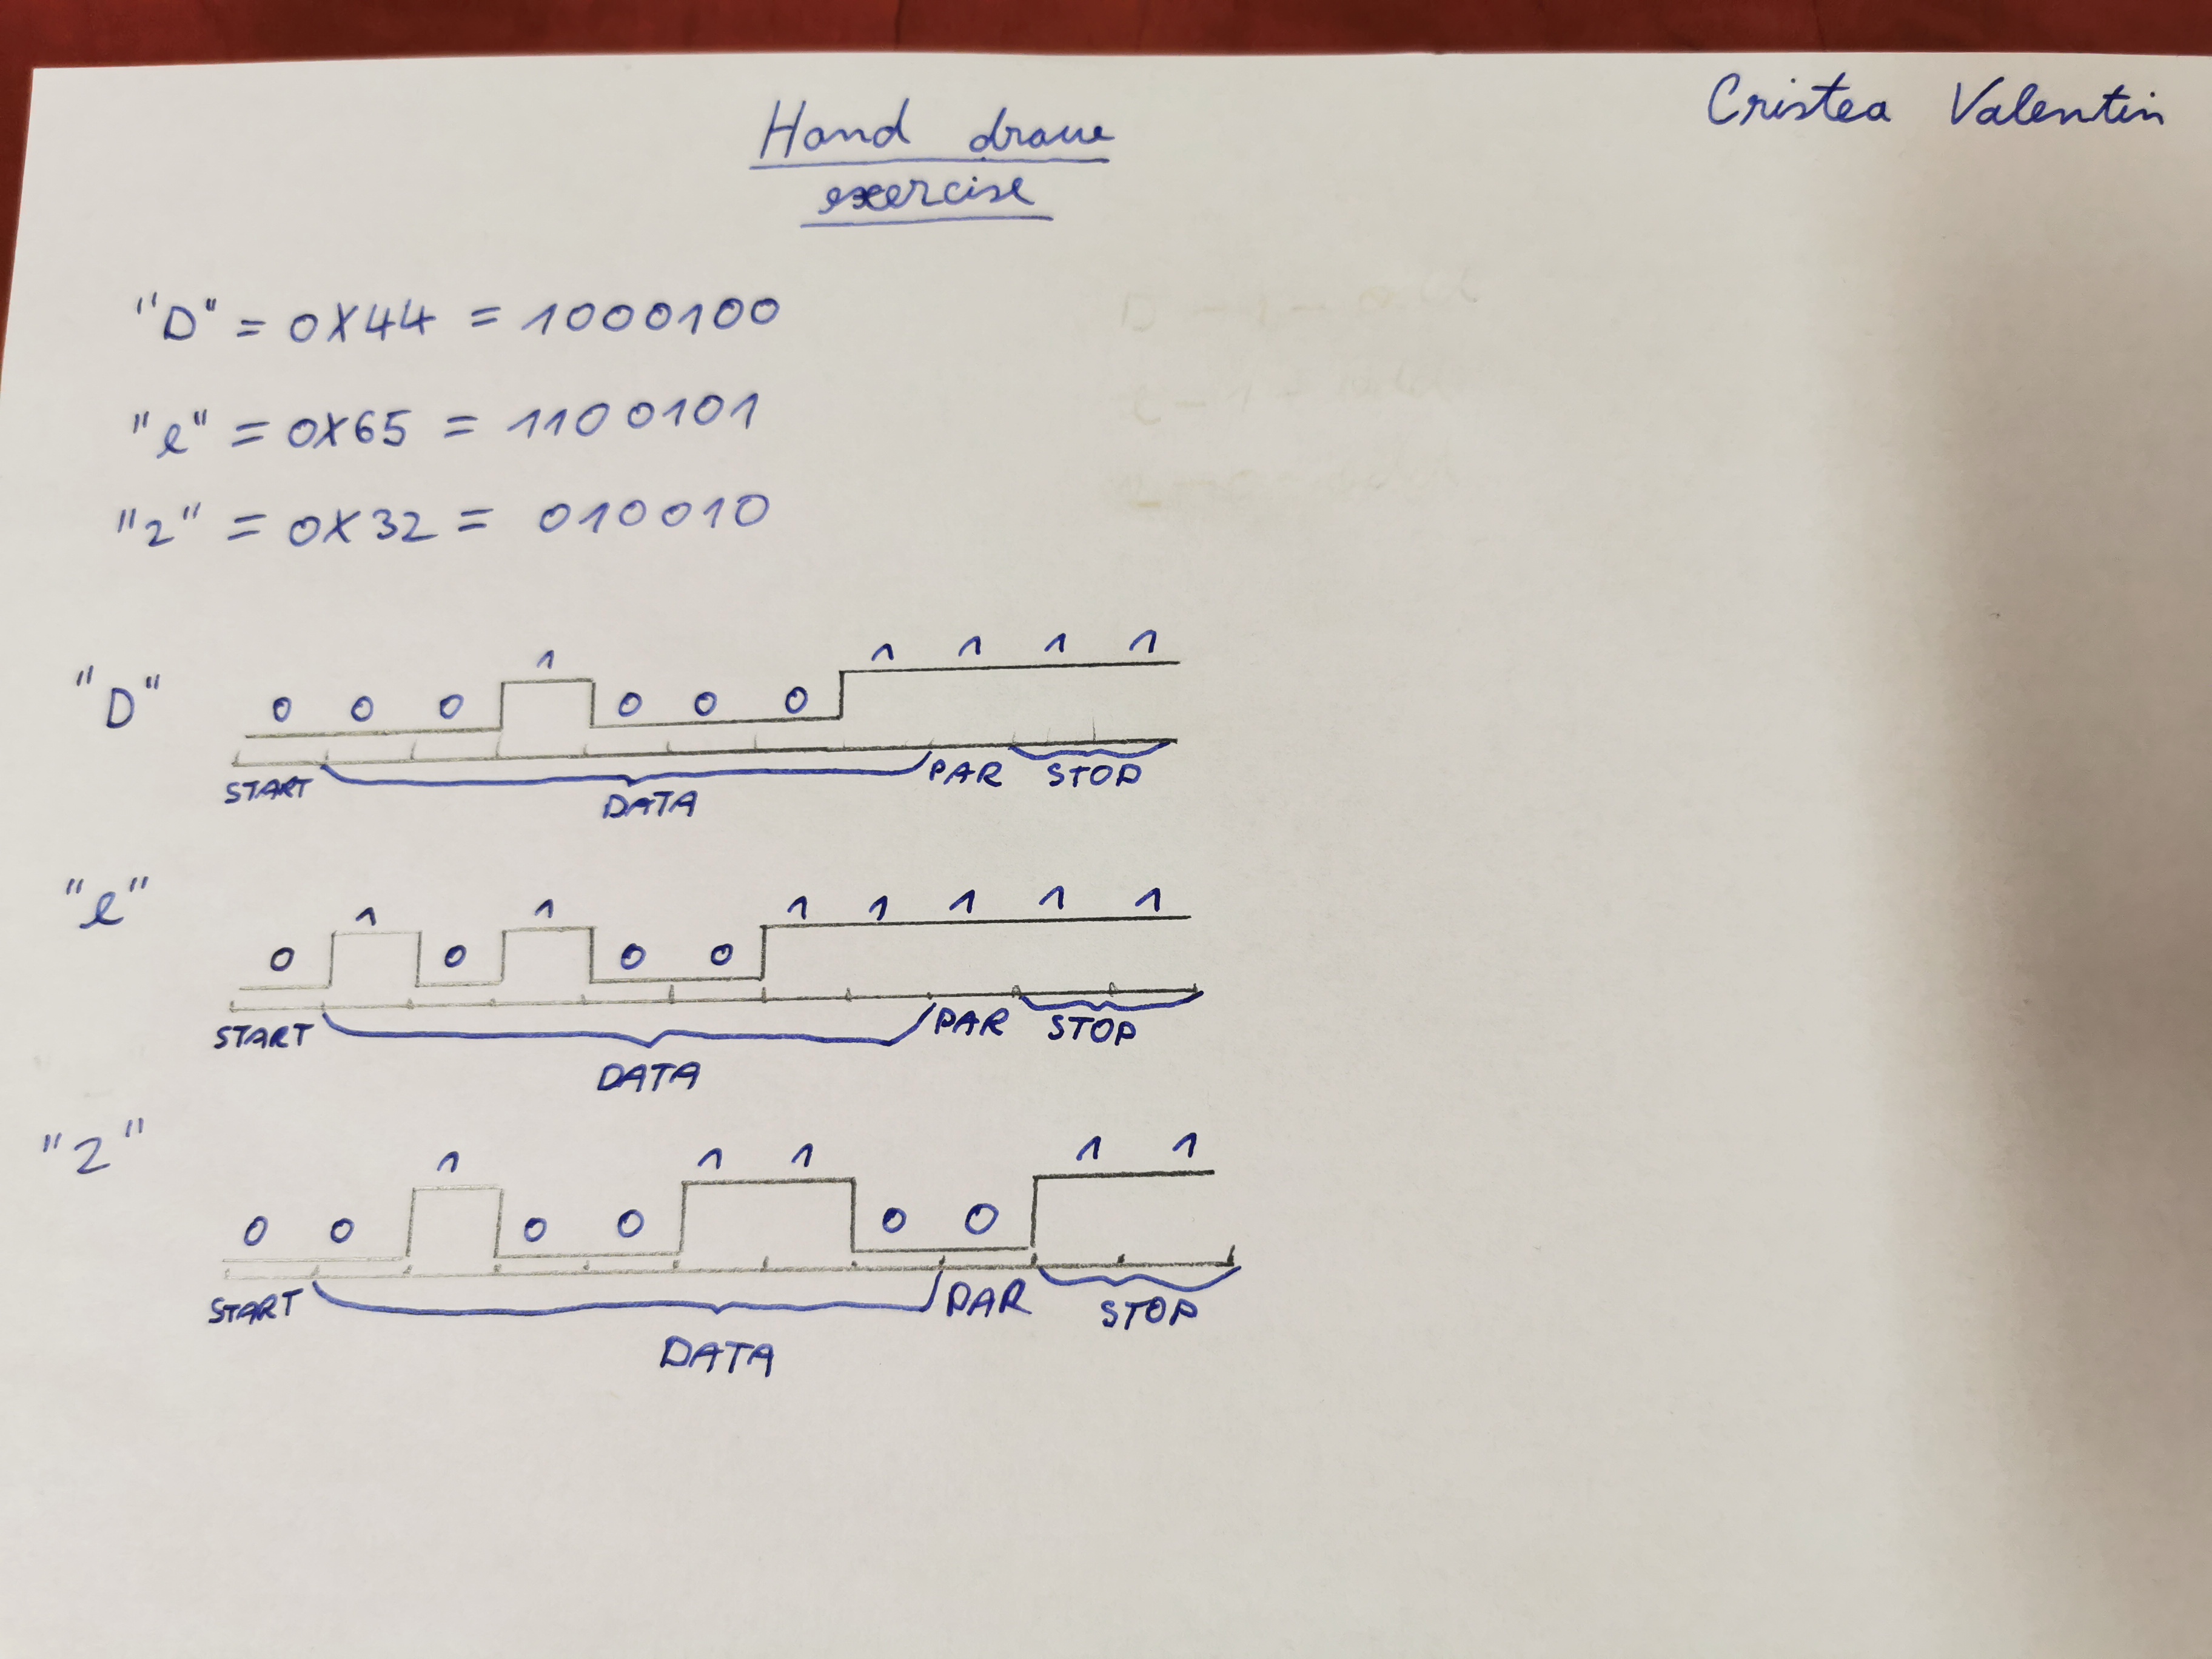 Cristea Valentin
Hand draw
exercise
"D" = 0X44 = 1000100
"e" = 0X65 = 1100101
"2" = 0X32 = 010010
"D"
0 0 0 1 0 0 0 1 1 1 1
START DATA PAR STOP
"e"
0 1 0 1 0 0 1 1 1 1 1
START DATA PAR STOP
"2"
0 0 1 0 0 1 1 0 0 1 1
START DATA PAR STOP